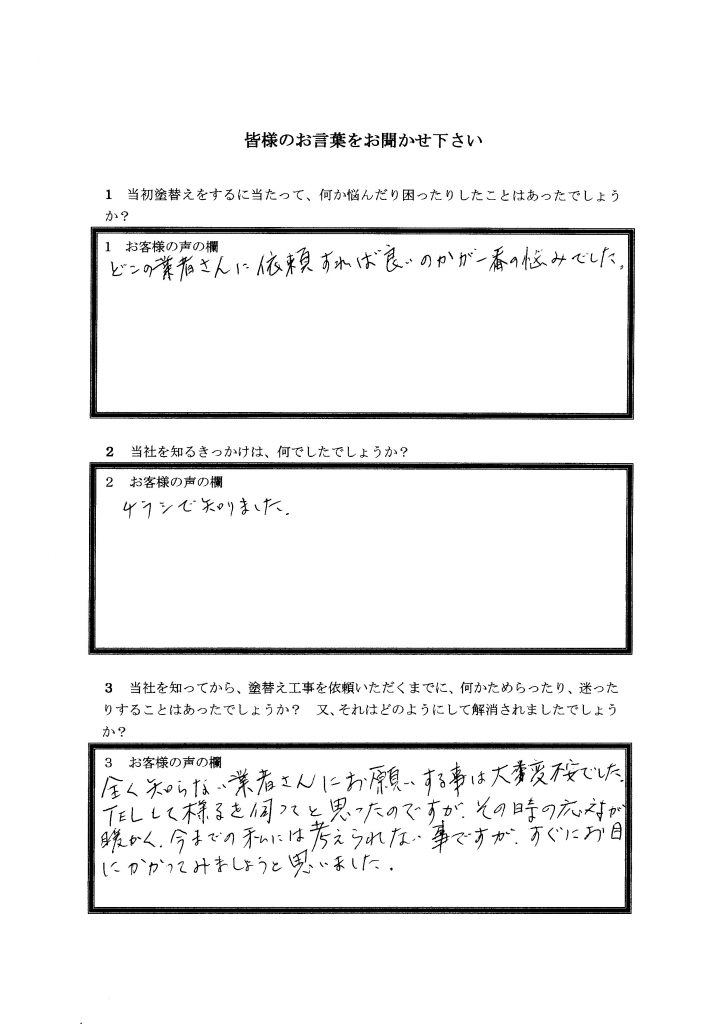 皆様のお言葉をお聞かせ下さい
1 当初塗替えをするに当たって、何か悩んだり困ったりしたことはあったでしょう
か？
1 お客様の声の欄
どこの業者さんに依頼すれば良いのかが一番の悩みでした。
2 当社を知るきっかけは、何でしたでしょうか？
2 お客様の声の欄
チラシで知りました。
3 当社を知ってから、塗替え工事を依頼いただくまでに、何かためらったり、迷った
りすることはあったでしょうか？ 又、それはどのようにして解消されましたでしょう
か？
3 お客様の声の欄
全く知らない業者さんにお願いする事は大変不安でした。
TELして様子を伺ってと思ったのですが、その時の応対が
暖かく、今までの私には考えられない事ですが、すぐにお目
にかかってみましょうと思いました。